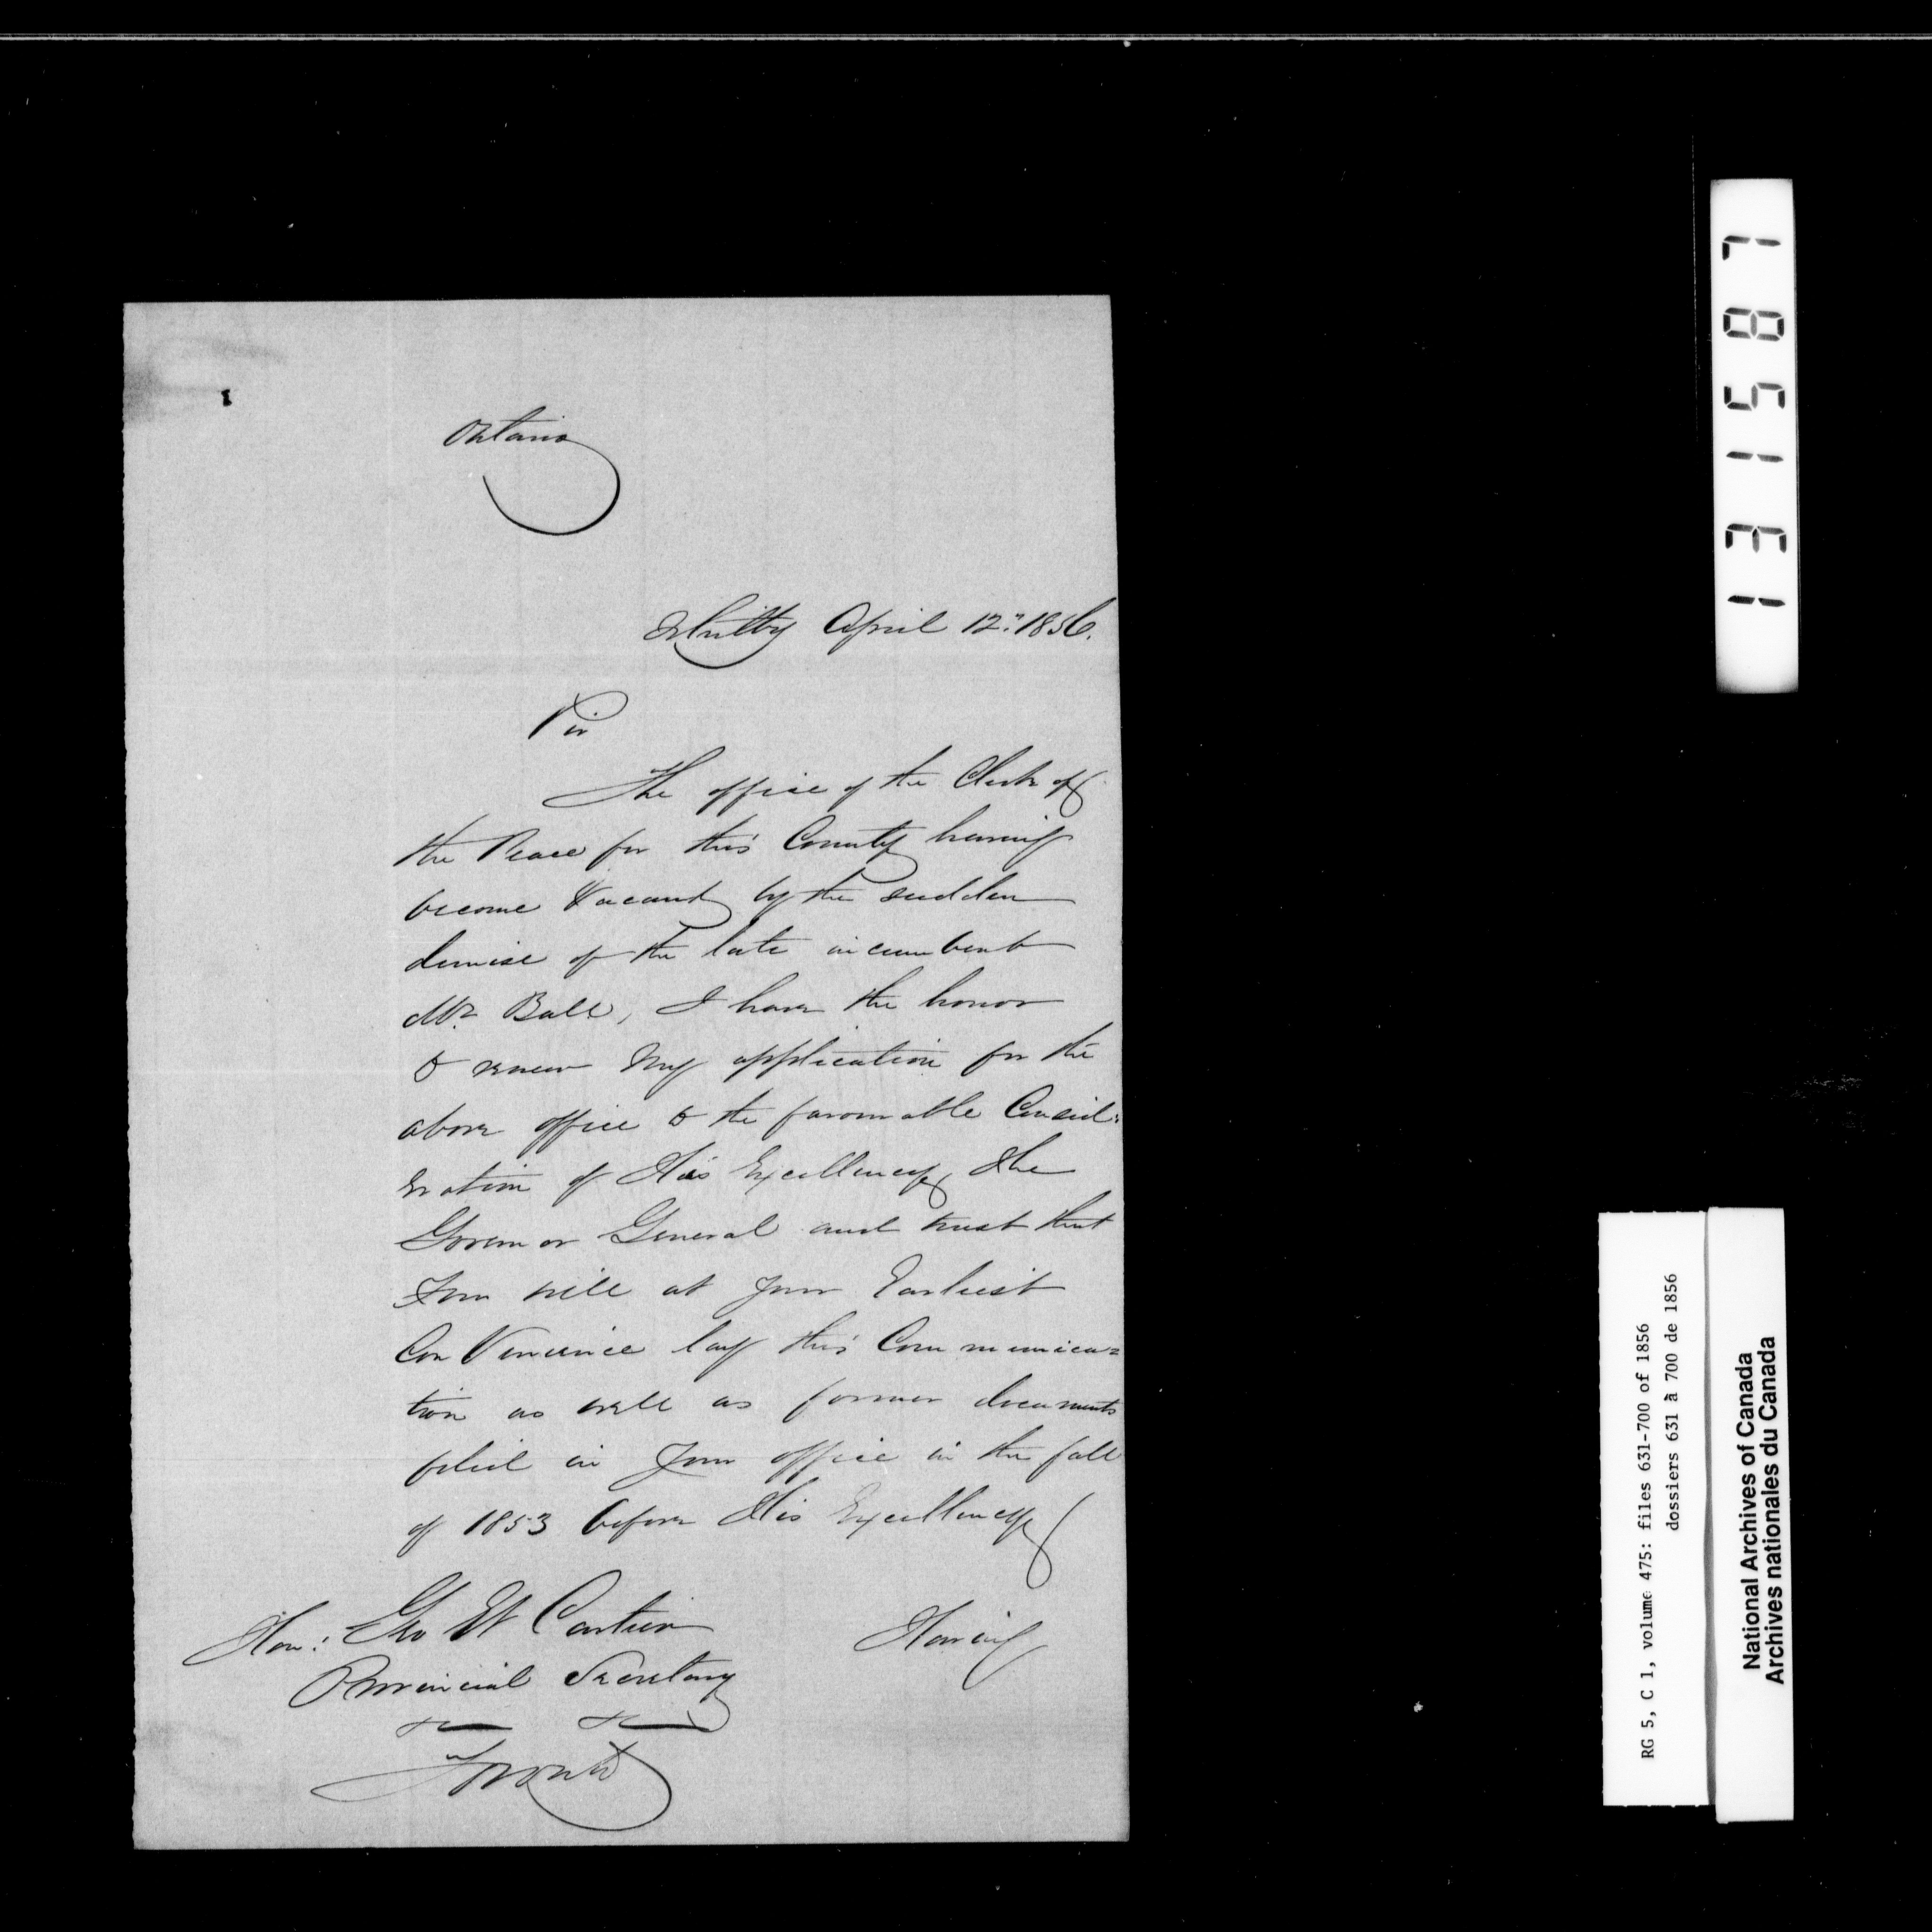 Ontario
Whitby April 12" 1856.
Sir
The office of the Clerk of
the Peace for this County having
become Vacant by the sudden
demise of the late incumbent
Mr. Ball, I have the honor
to renew my application for the
above office to the favourable Consid:
eration of His Excellency the
Governor General and trust that
You will at your Earliest
Convenience lay this Communica=
tion as well as former documents
filed in Your office in the fall
of 1853 before His Excellency
Having
Hon: Geo Et Cartier
Provincial Secretary
&c &c
Toronto
131587
RG 5, C 1, volume 475: files 631-700 of 1856
dossiers 631 à 700 de 1856
National Archives of Canada
Archives nationales du Canada